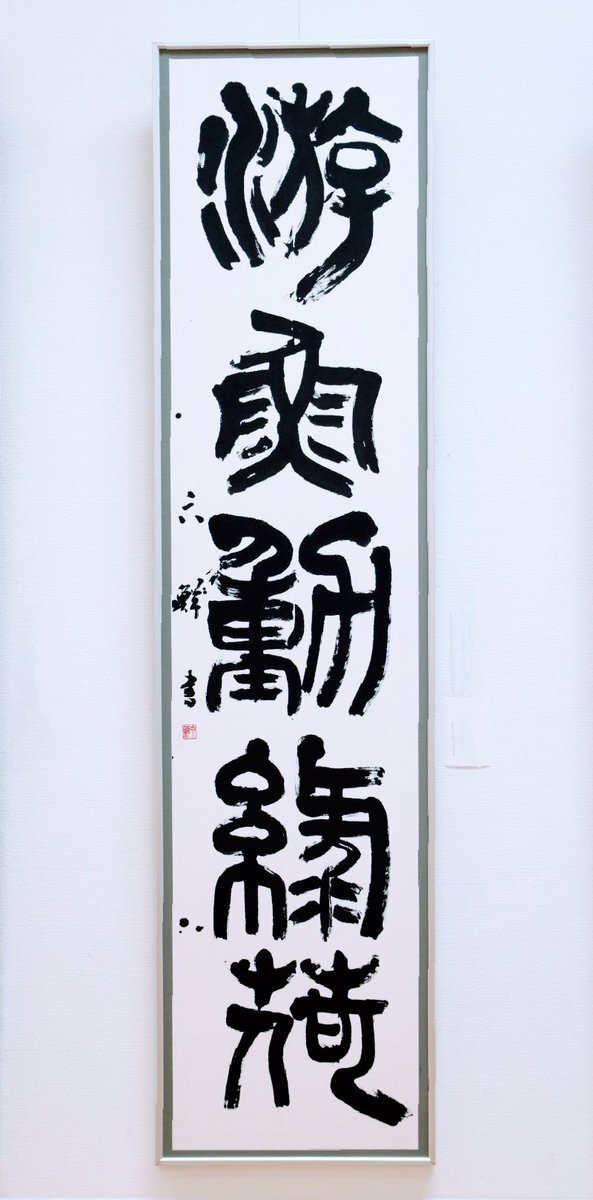 游魚動緑荷
六 書